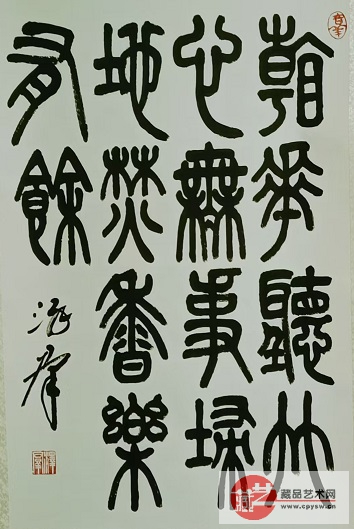 看花聽竹
心無事掃
地焚香樂
有餘
藏品艺术网
www.cpysw.cn